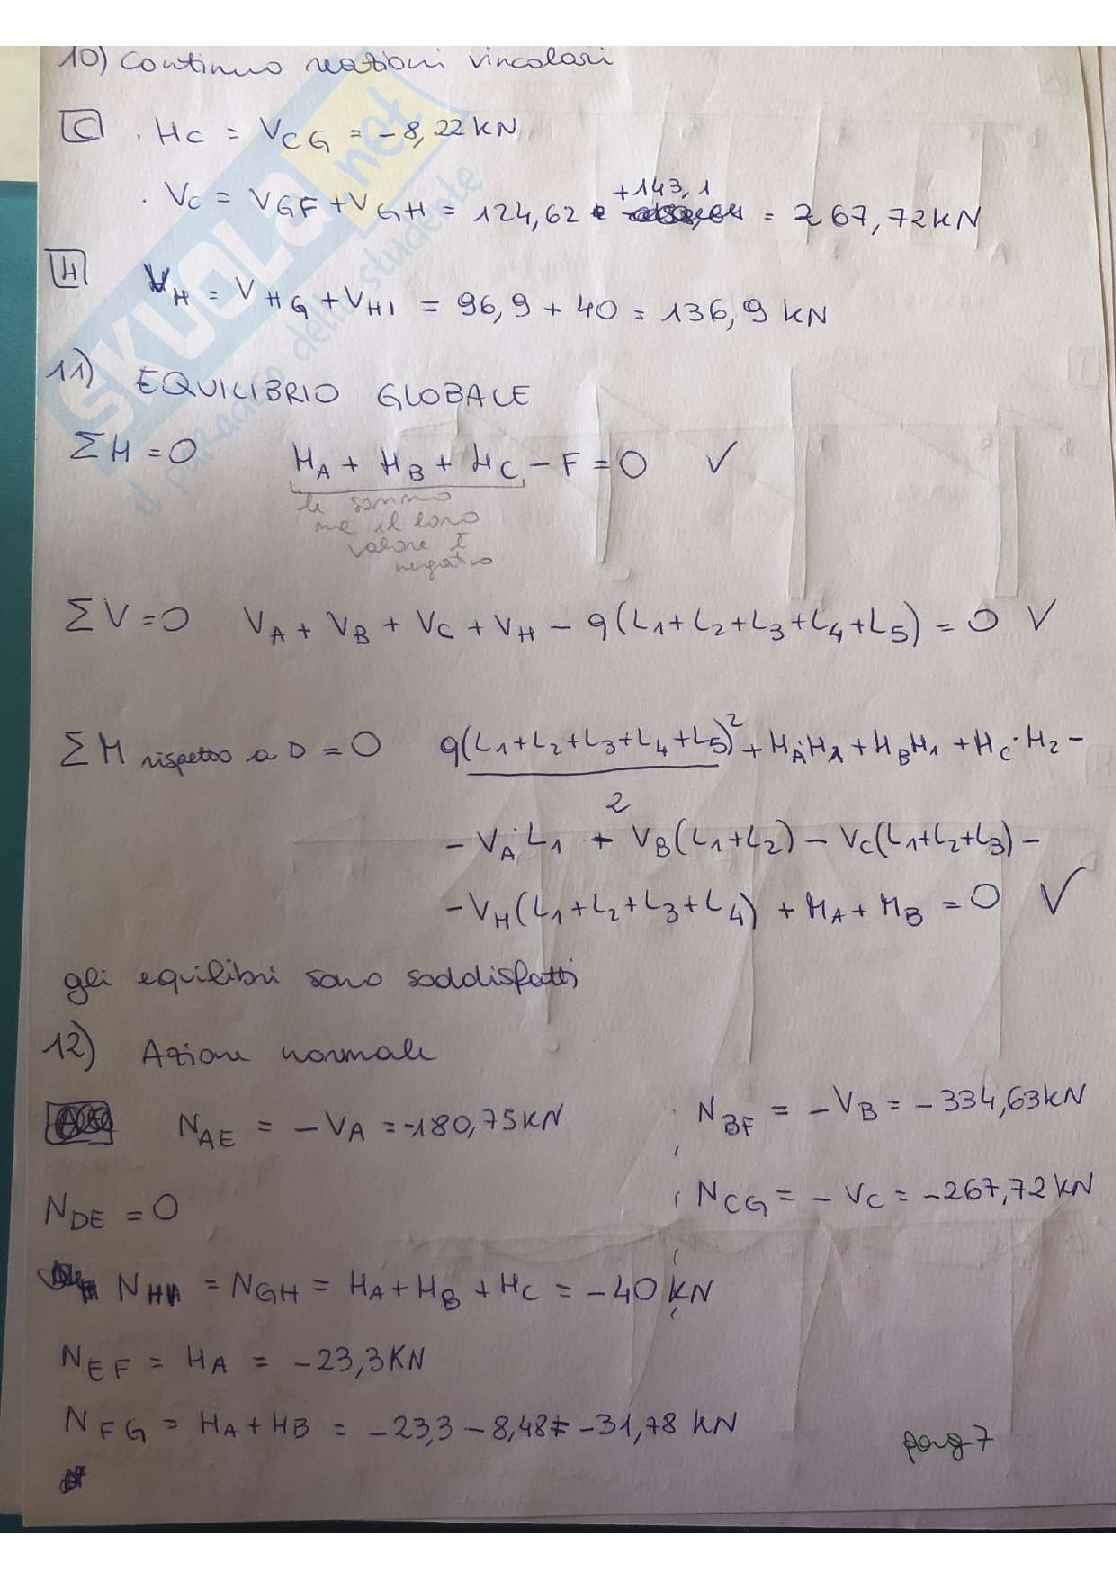 10) Continuo reazioni vincolari
C . HC = VCG = -8,22 KN
. VC = VGF + VGH = 124,62 +143,1 = 267,72 KN
H VH = VHG + VHI = 96,9 + 40 = 136,9 KN
11) EQUILIBRIO GLOBALE
ΣH = 0 HA + HB + HC - F = 0 ✓
le sommo
ma il loro
valore è
negativo
ΣV = 0 VA + VB + VC + VH - q(L1+L2+L3+L4+L5) = 0 ✓
ΣM rispetto a D = 0 q(L1+L2+L3+L4+L5)²/2 + HAH1 + HBH1 + HC·H2 -
- VA·L1 + VB(L1+L2) - VC(L1+L2+L3) -
- VH(L1+L2+L3+L4) + MA + MB = 0 ✓
gli equilibri sono soddisfatti
12) Azione normale
NAE = -VA = -180,75 KN
NBF = -VB = -334,63 KN
NDE = 0
NCG = -VC = -267,72 KN
NHI = NGH = HA + HB + HC = -40 KN
NEF = HA = -23,3 KN
NFG = HA + HB = -23,3 - 8,48 = -31,78 KN
pag 7
SKUOLA.net